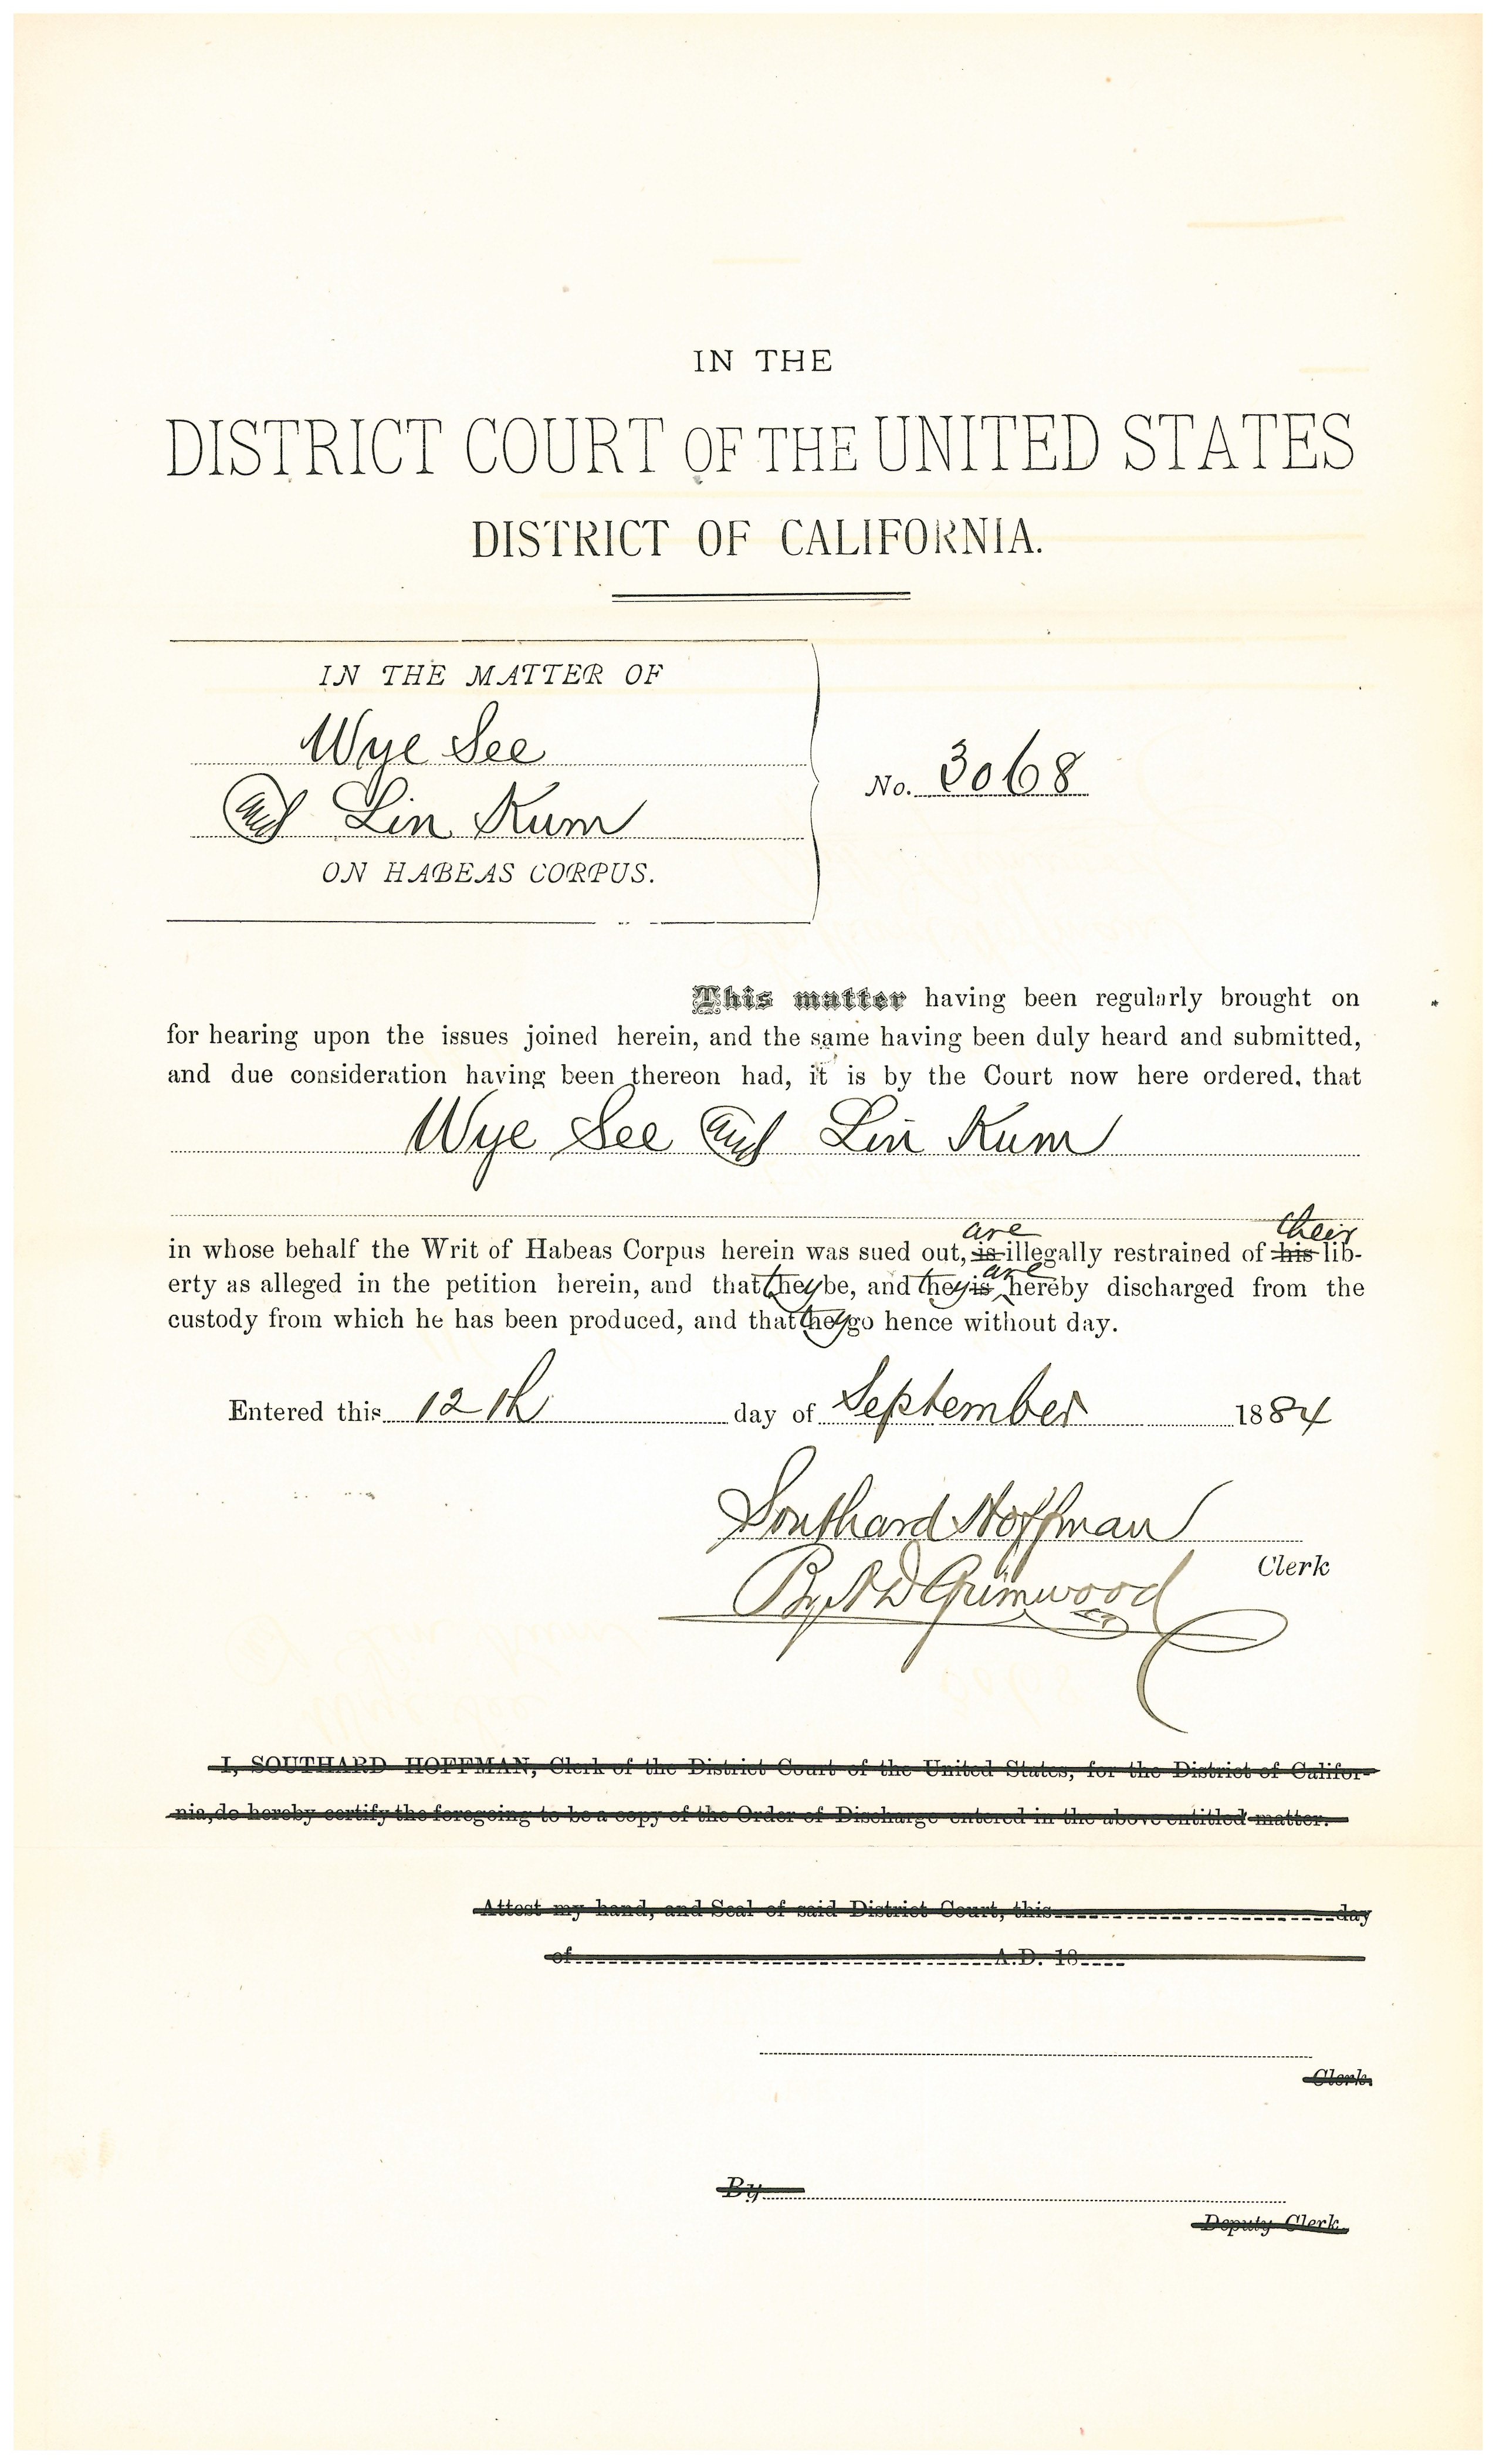 IN THE
DISTRICT COURT OF THE UNITED STATES
DISTRICT OF CALIFORNIA.
IN THE MATTER OF
Wye See
and Lin Kum
ON HABEAS CORPUS.
No. 3068
This matter having been regularly brought on
for hearing upon the issues joined herein, and the same having been duly heard and submitted,
and due consideration having been thereon had, it is by the Court now here ordered, that
Wye See and Lin Kum
are their
in whose behalf the Writ of Habeas Corpus herein was sued out, is illegally restrained of his lib-
are
erty as alleged in the petition herein, and that they be, and they is hereby discharged from the
custody from which he has been produced, and that they go hence without day.
Entered this 12th day of September 1884
Southard Hoffman
Clerk
By A D Grimwood
I, SOUTHARD HOFFMAN, Clerk of the District Court of the United States, for the District of Califor-
nia, do hereby certify the foregoing to be a copy of the Order of Discharge entered in the above entitled matter.
Attest my hand, and Seal of said District Court, this day
of A.D. 18
Clerk.
By
Deputy Clerk.